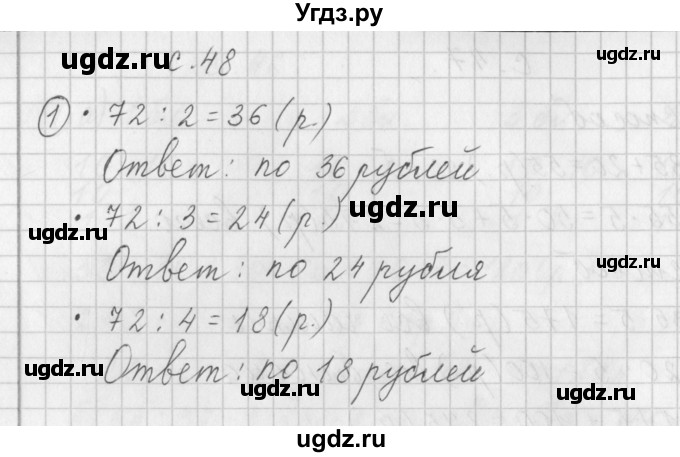 Угдз.ру
ugdz.ru
ugdz.ru
с.48
1 • 72 : 2 = 36 (р.)
ugdz.ru
Ответ: по 36 рублей
ugdz.ru
• 72 : 3 = 24 (р.)
ugdz.ru
ugdz.ru
Ответ: по 24 рубля
• 72 : 4 = 18 (р.)
Ответ: по 18 рублей
ugdz.ru
ugdz.ru
ugdz.ru
ugdz.ru